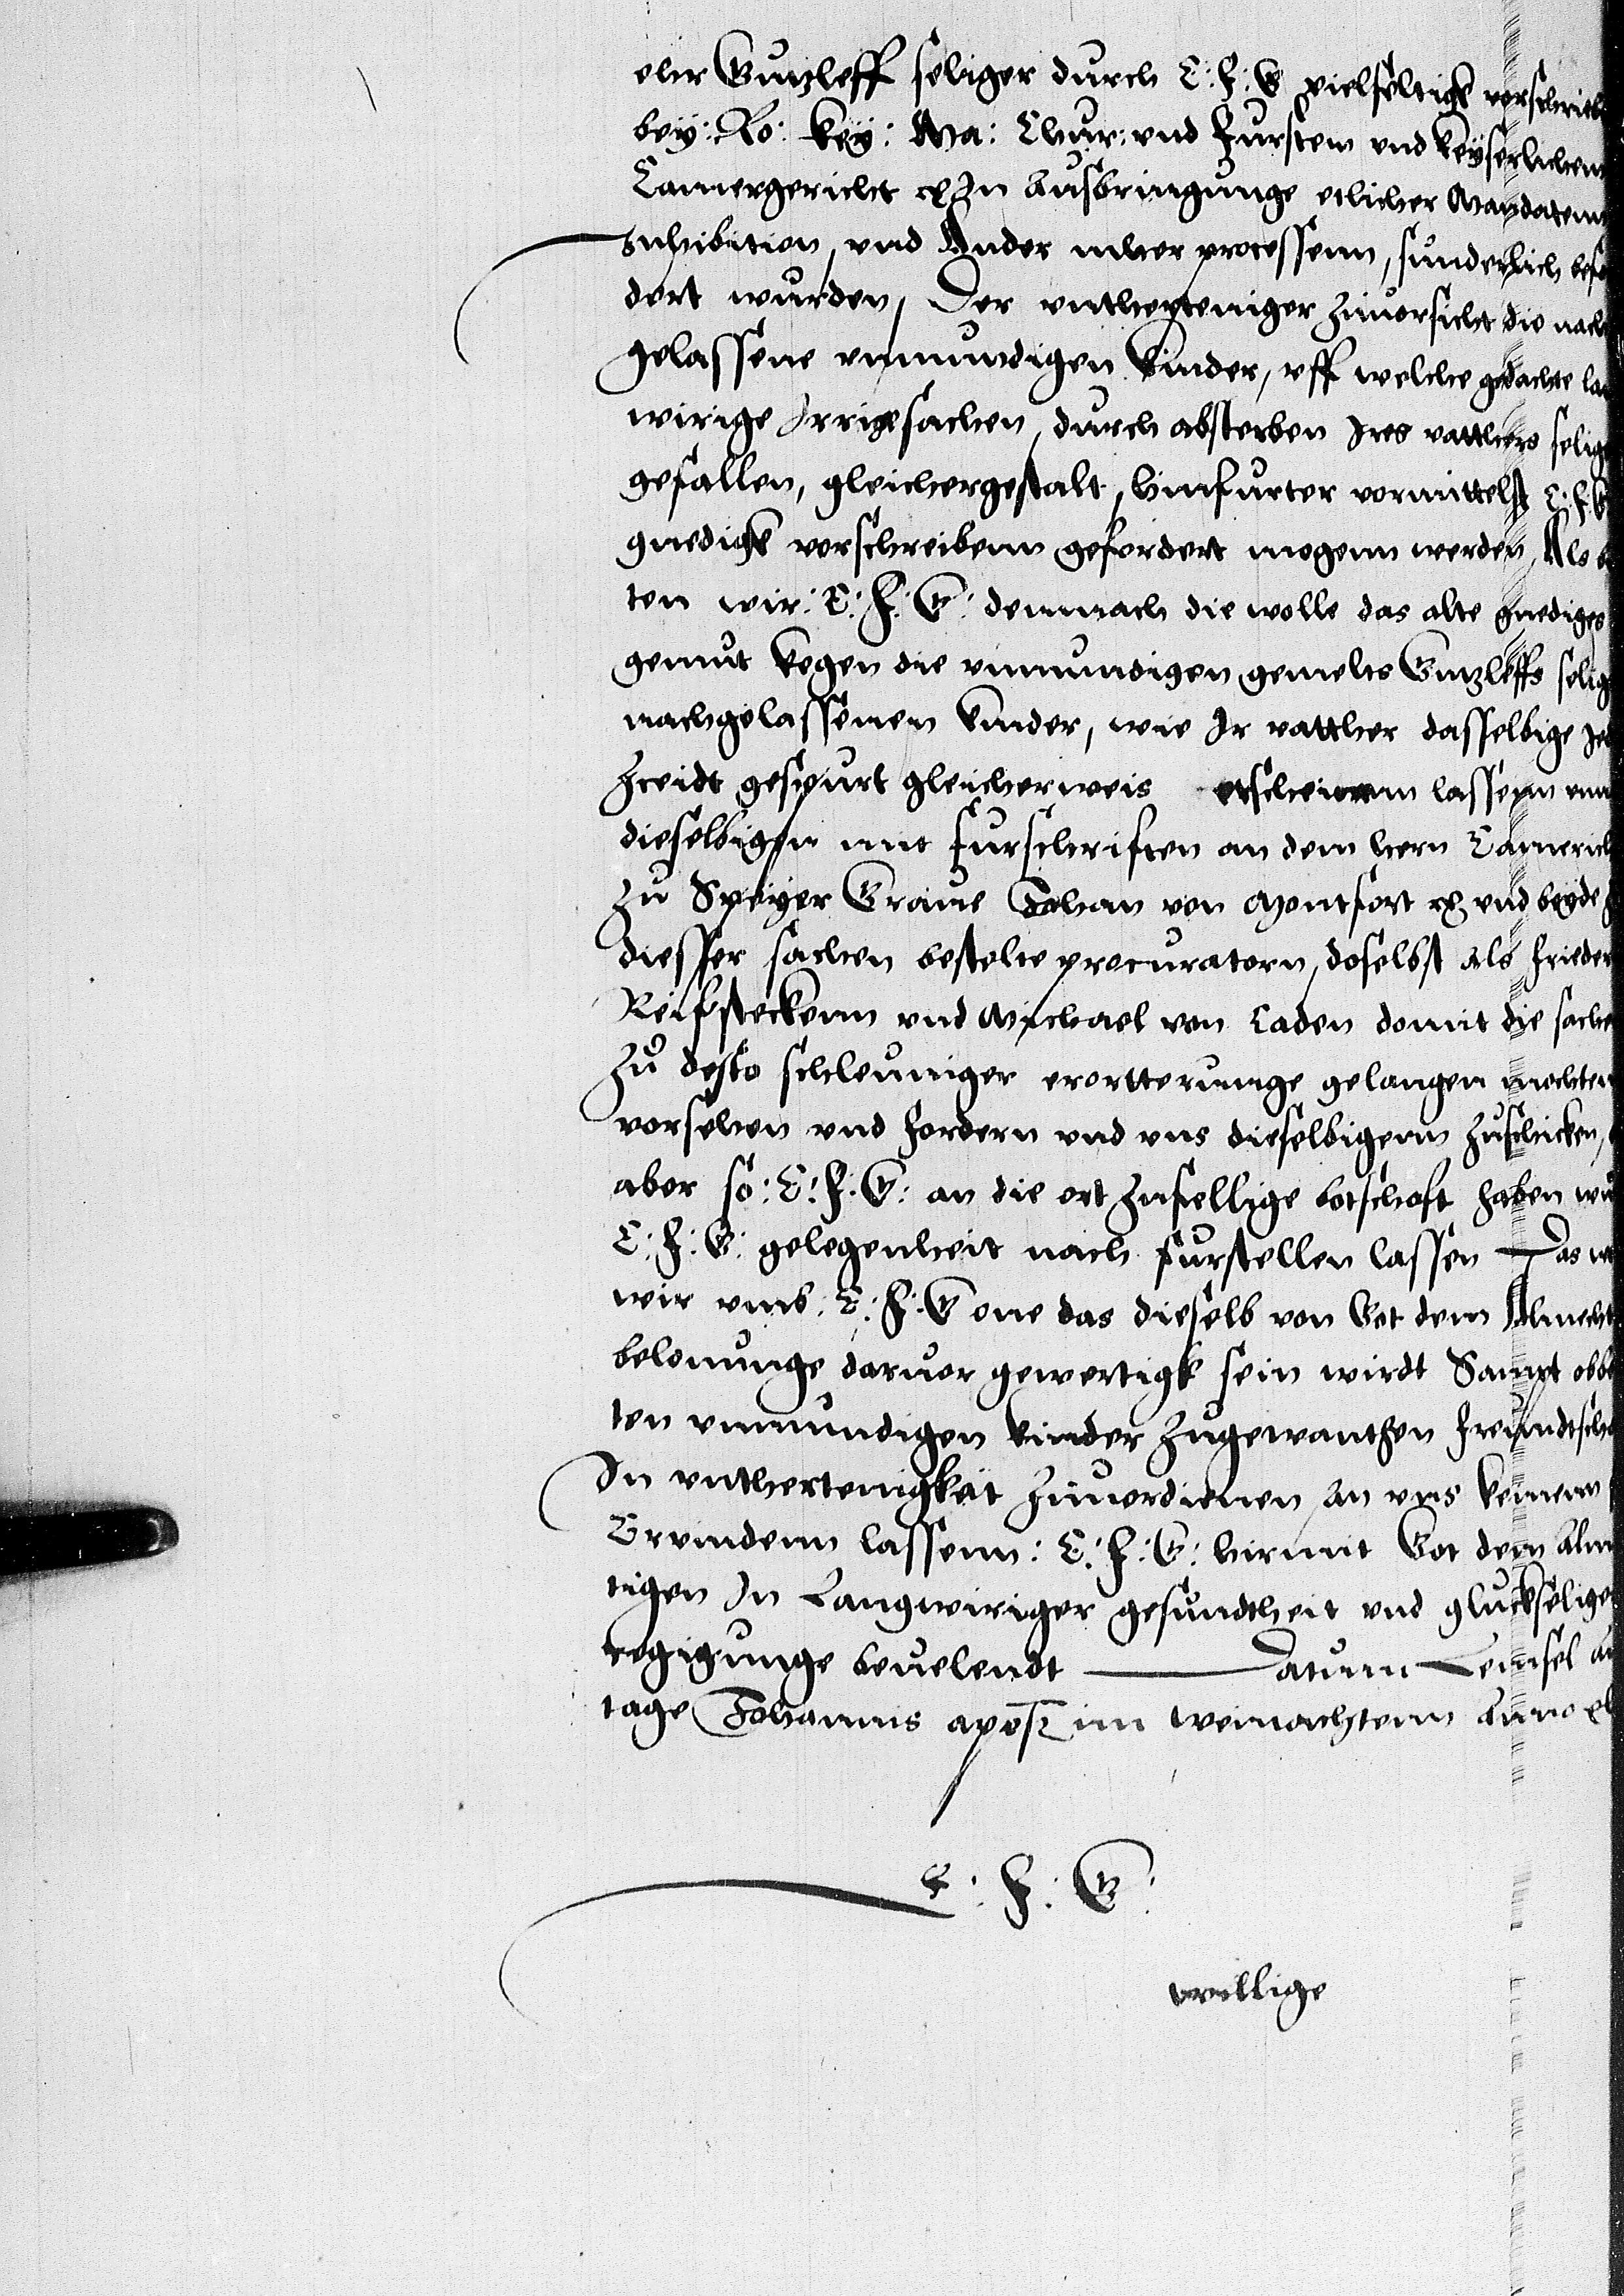 ehr Gutzleff seliger durch E: F: G vielfeltigk vorschrieb
bey: Ro: Key: Ma: Chur: vnd Fursten vnd Keyserlichem
Camergericht etc In Ausbringunge etlicher Mandatenn
Inhibition, vnd Ander mher processenn, sunderlich befo
dert wurden, Der vnthertenigen Zuuorsicht die nach
gelassene vnmundigen Kinder, vff welche gedachte la
wirige Irrige sachen, durch absterben Ires vatthers selig
gefallen, gleichergestalt, hinfurter vormittelst E: F: G
gnedigk vorschreibenn gefordert mogenn werden, Als b
ten wir: E: F: G: demnach die wolle das alte gnediges
gemut kegen die vnmundigen gemelts Gutzleffs selig
nachgelassenen kinder, wie Ir vatther dasselbige Je
Zceidt gespurt gleicherweis erscheinenn lassenn vnn
dieselbigen mit furschriften an dem hern Camerich
zu Speyer Graue Johan von Montfort etc vnd beyde
diesser sachen bestelte procuratorn, doselbst als Frieder
Reifsteckenn vnd Michael von Caden domit die sache
zu desto schleuniger erortterunge gelangen mochten
vorsehen vnd fordern vnd vns dieselbigenn zuschicken,
aber so: E: F: G: an die ort zufellige botschaft haben wu
E: F: G: gelegenheit nach furstellen lassen Das w
wir vmb: E: F: G one das dieselb von Got dem Almecht
belonunge daruor gewertigk sein wirdt Sampt obb
ten vnmundigen kinder zugewanthen freundtsch
In vnthertenigkeit zuuordienen an vns keinenn
Ervindenn lassenn: E: F: G: hirmit Got dem Alm
tigen In Langwiriger gesundtheit vnd gluckseliger
regigunge beuelendt Datum Lemsel a
tage Johannis apost im weinachtenn Anno xl
E: F: G:
willige